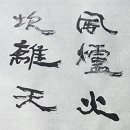 風爐火
坎離天